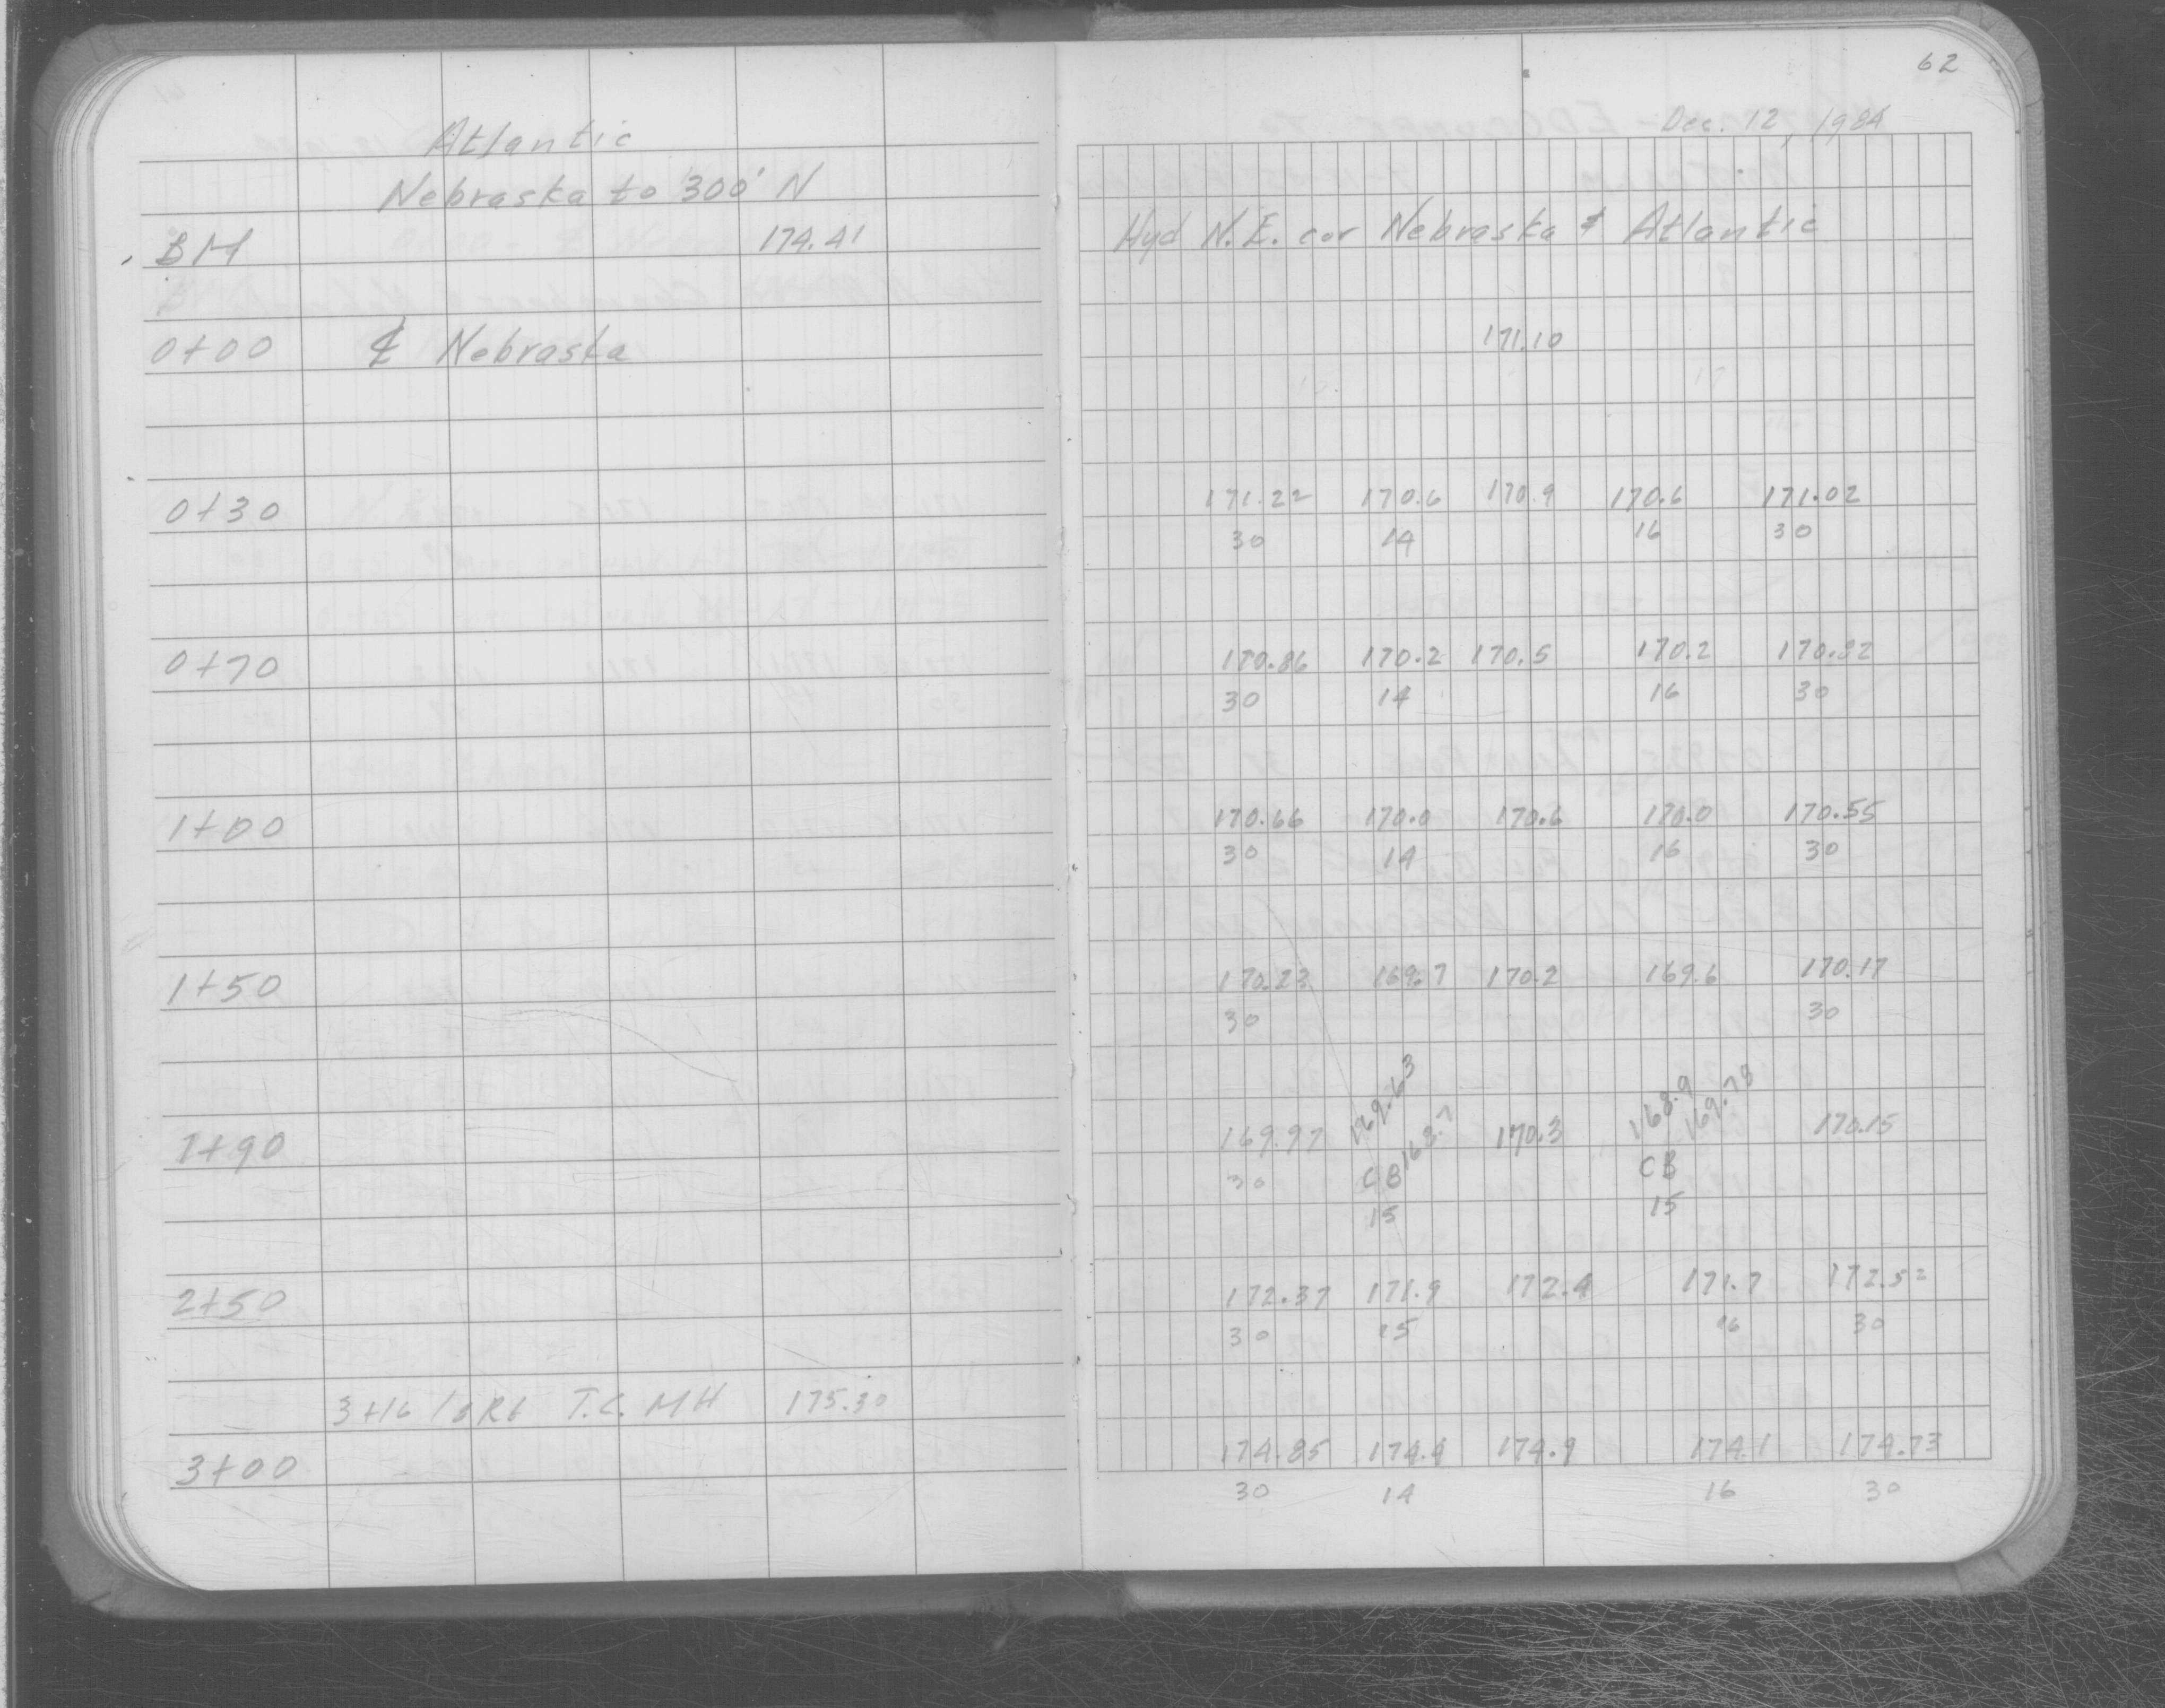 62
Dec. 12, 1984
Atlantic
Nebraska to 300' N
BM 174.41 Hyd N.E. cor Nebraska & Atlantic
0+00 ℄ Nebraska 171.10
0+30 171.22 170.6 170.9 170.6 171.02
30 14 16 30
0+70 170.86 170.2 170.5 170.2 170.82
30 14 16 30
1+00 170.66 170.0 170.6 170.0 170.55
30 14 16 30
1+50 170.23 169.7 170.2 169.6 170.17
30 30
169.63 168.9 169.78
1+90 169.97 168.7 170.3 170.15
30 CB CB
15 15
2+50 172.37 171.9 172.4 171.7 172.52
30 15 16 30
3+16 Rt T.C. MH 175.30
3+00 174.85 174.4 174.9 174.1 174.73
30 14 16 30